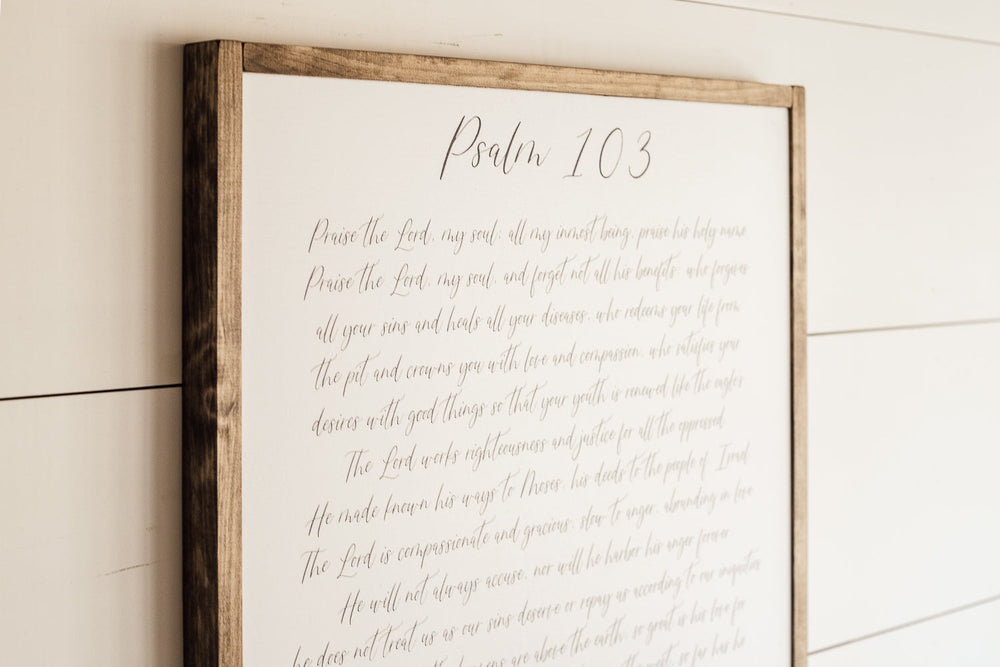 Psalm 103
Praise the Lord, my soul; all my inmost being, praise his holy name
Praise the Lord, my soul, and forget not all his benefits, who forgives
all your sins and heals all your diseases, who redeems your life from
the pit and crowns you with love and compassion, who satisfies your
desires with good things so that your youth is renewed like the eagles
The Lord works righteousness and justice for all the oppressed
He made known his ways to Moses, his deeds to the people of Israel
The Lord is compassionate and gracious, slow to anger, abounding in love
He will not always accuse, nor will he harbor his anger forever
he does not treat us as our sins deserve or repay us according to our iniquities
are above the earth, so great is his love for
so far has he